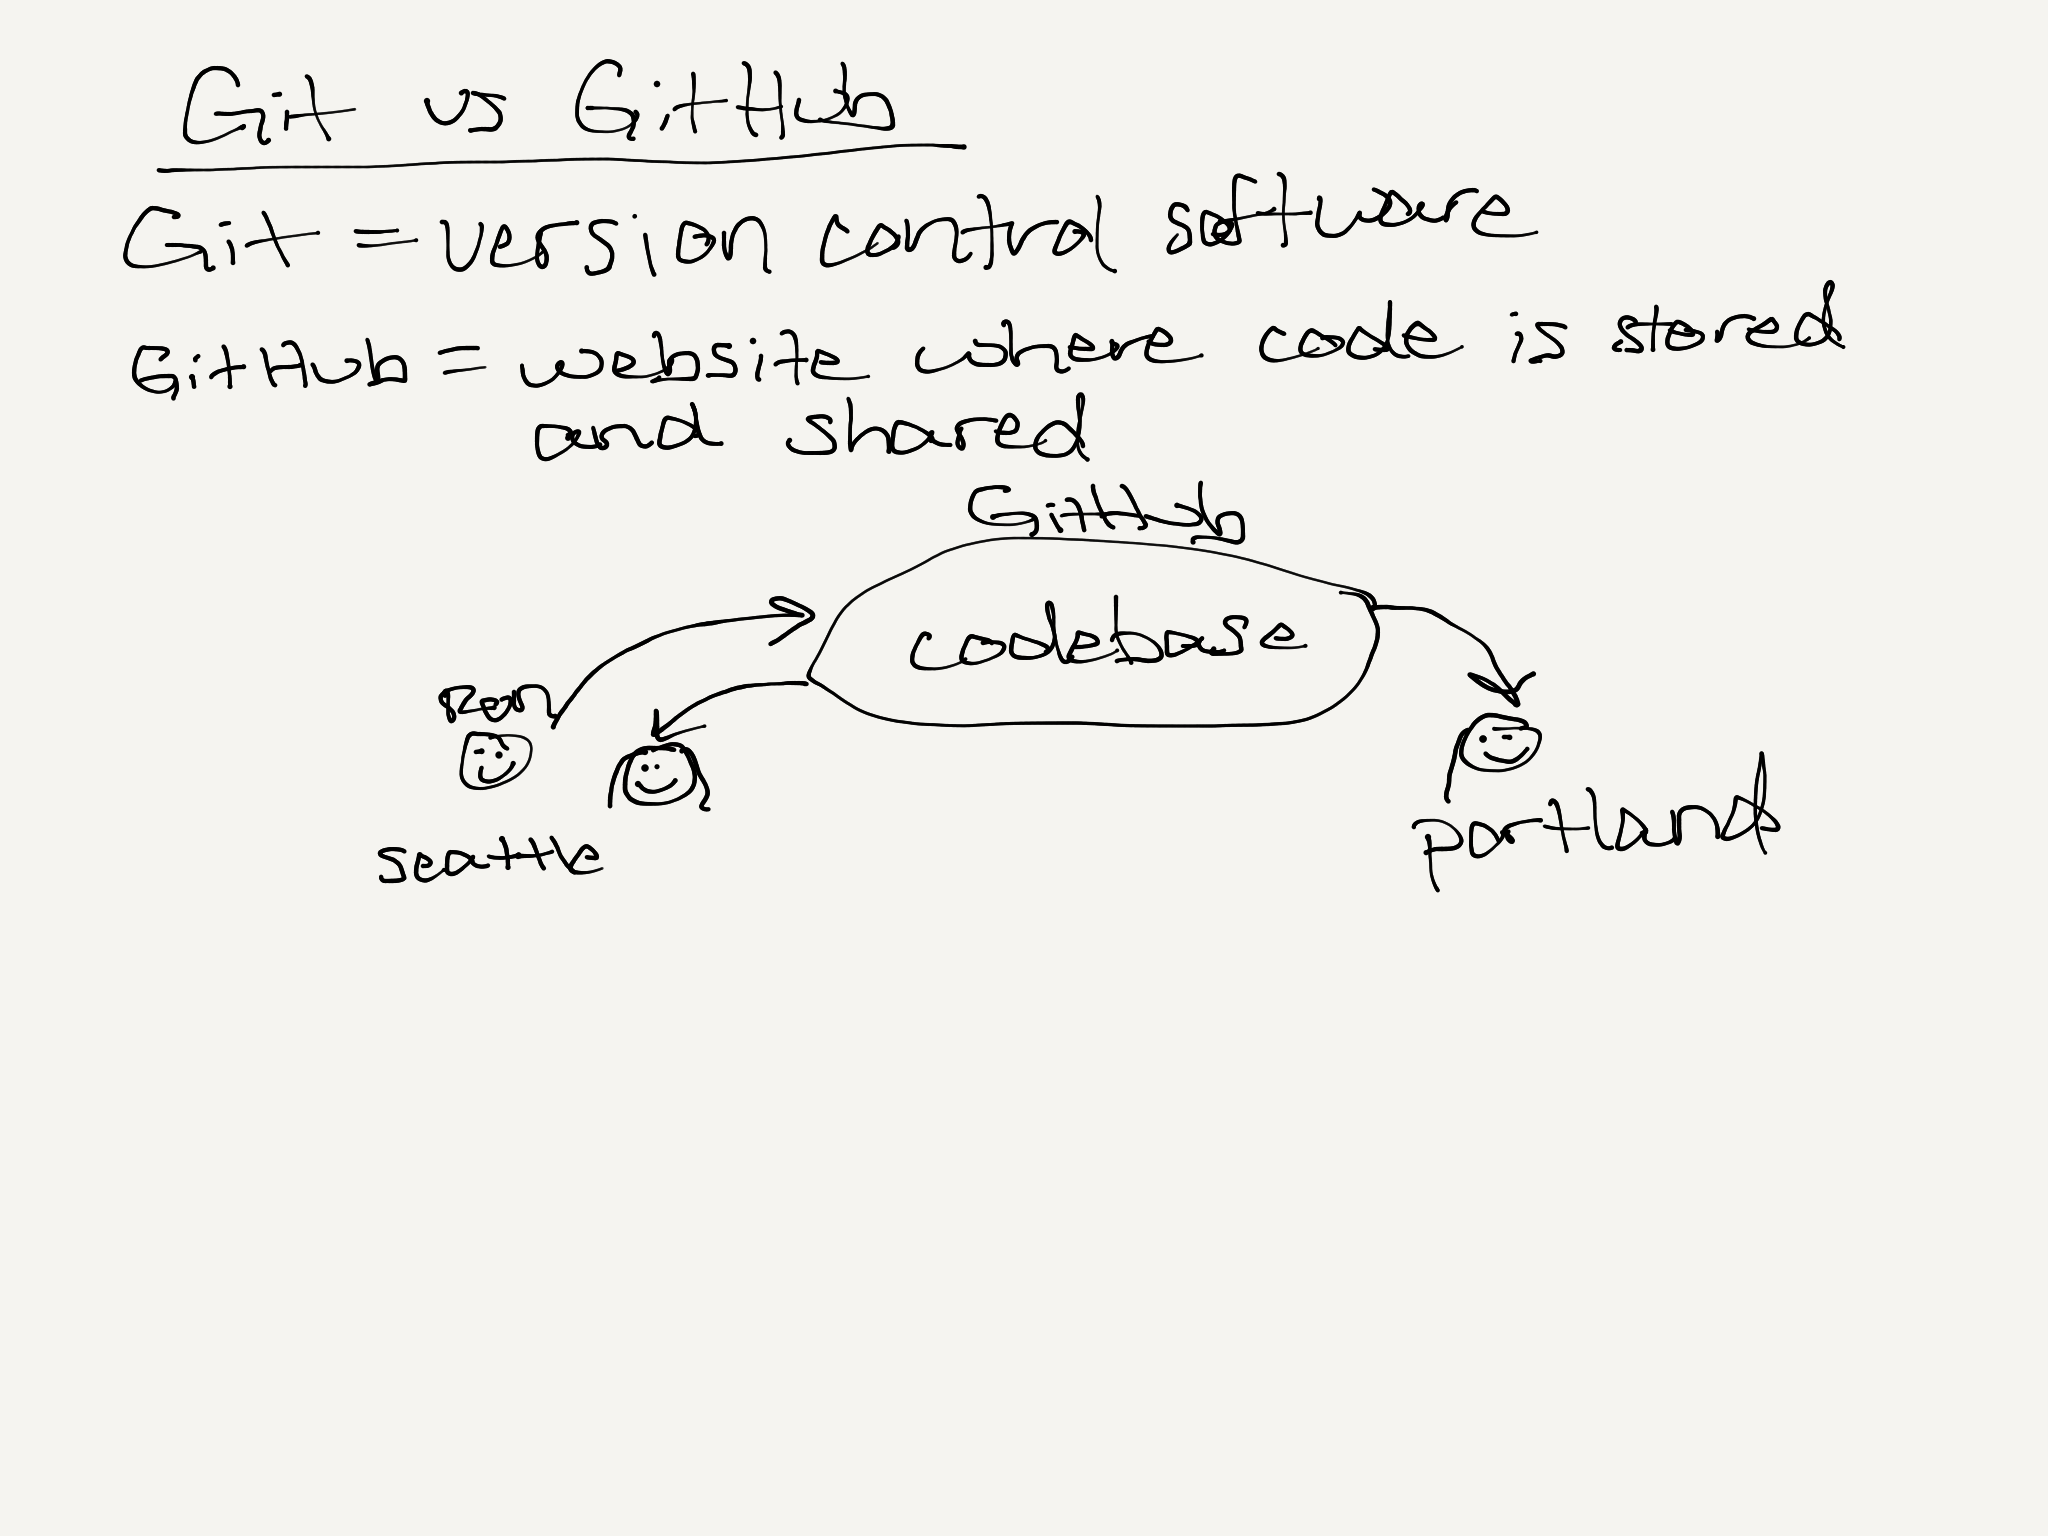 Git vs GitHub
Git = version control software
GitHub = website where code is stored
and shared
GitHub
codebase
Ron
seattle
portland